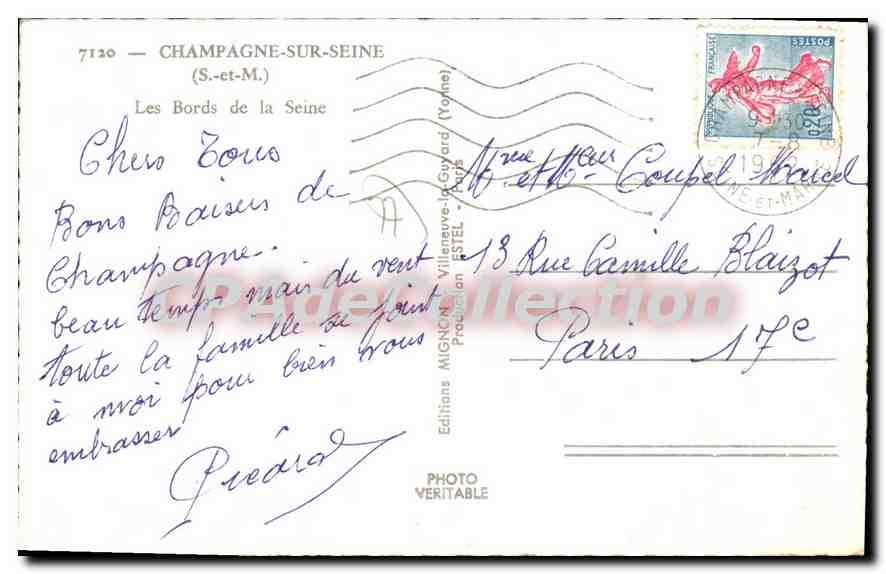 7120 — CHAMPAGNE-SUR-SEINE
(S.-et-M.)
Les Bords de la Seine
Chers Tous
Bons Baisers de
Champagne.
beau temps mais du vent
toute la famille se joint
à moi pour bien vous
embrasser
Picard
A
Editions MIGNON, Villeneuve-la-Guyard (Yonne)
Production ESTEL - Paris
PHOTO
VERITABLE
Mme et Mr Coupel Marcel
13 Rue Camille Blaizot
Paris 17e
FRANÇAISE
POSTES
0,20
CHAMPAGNE
7-8
SEINE-ET-MARNE
CPAdeCollection